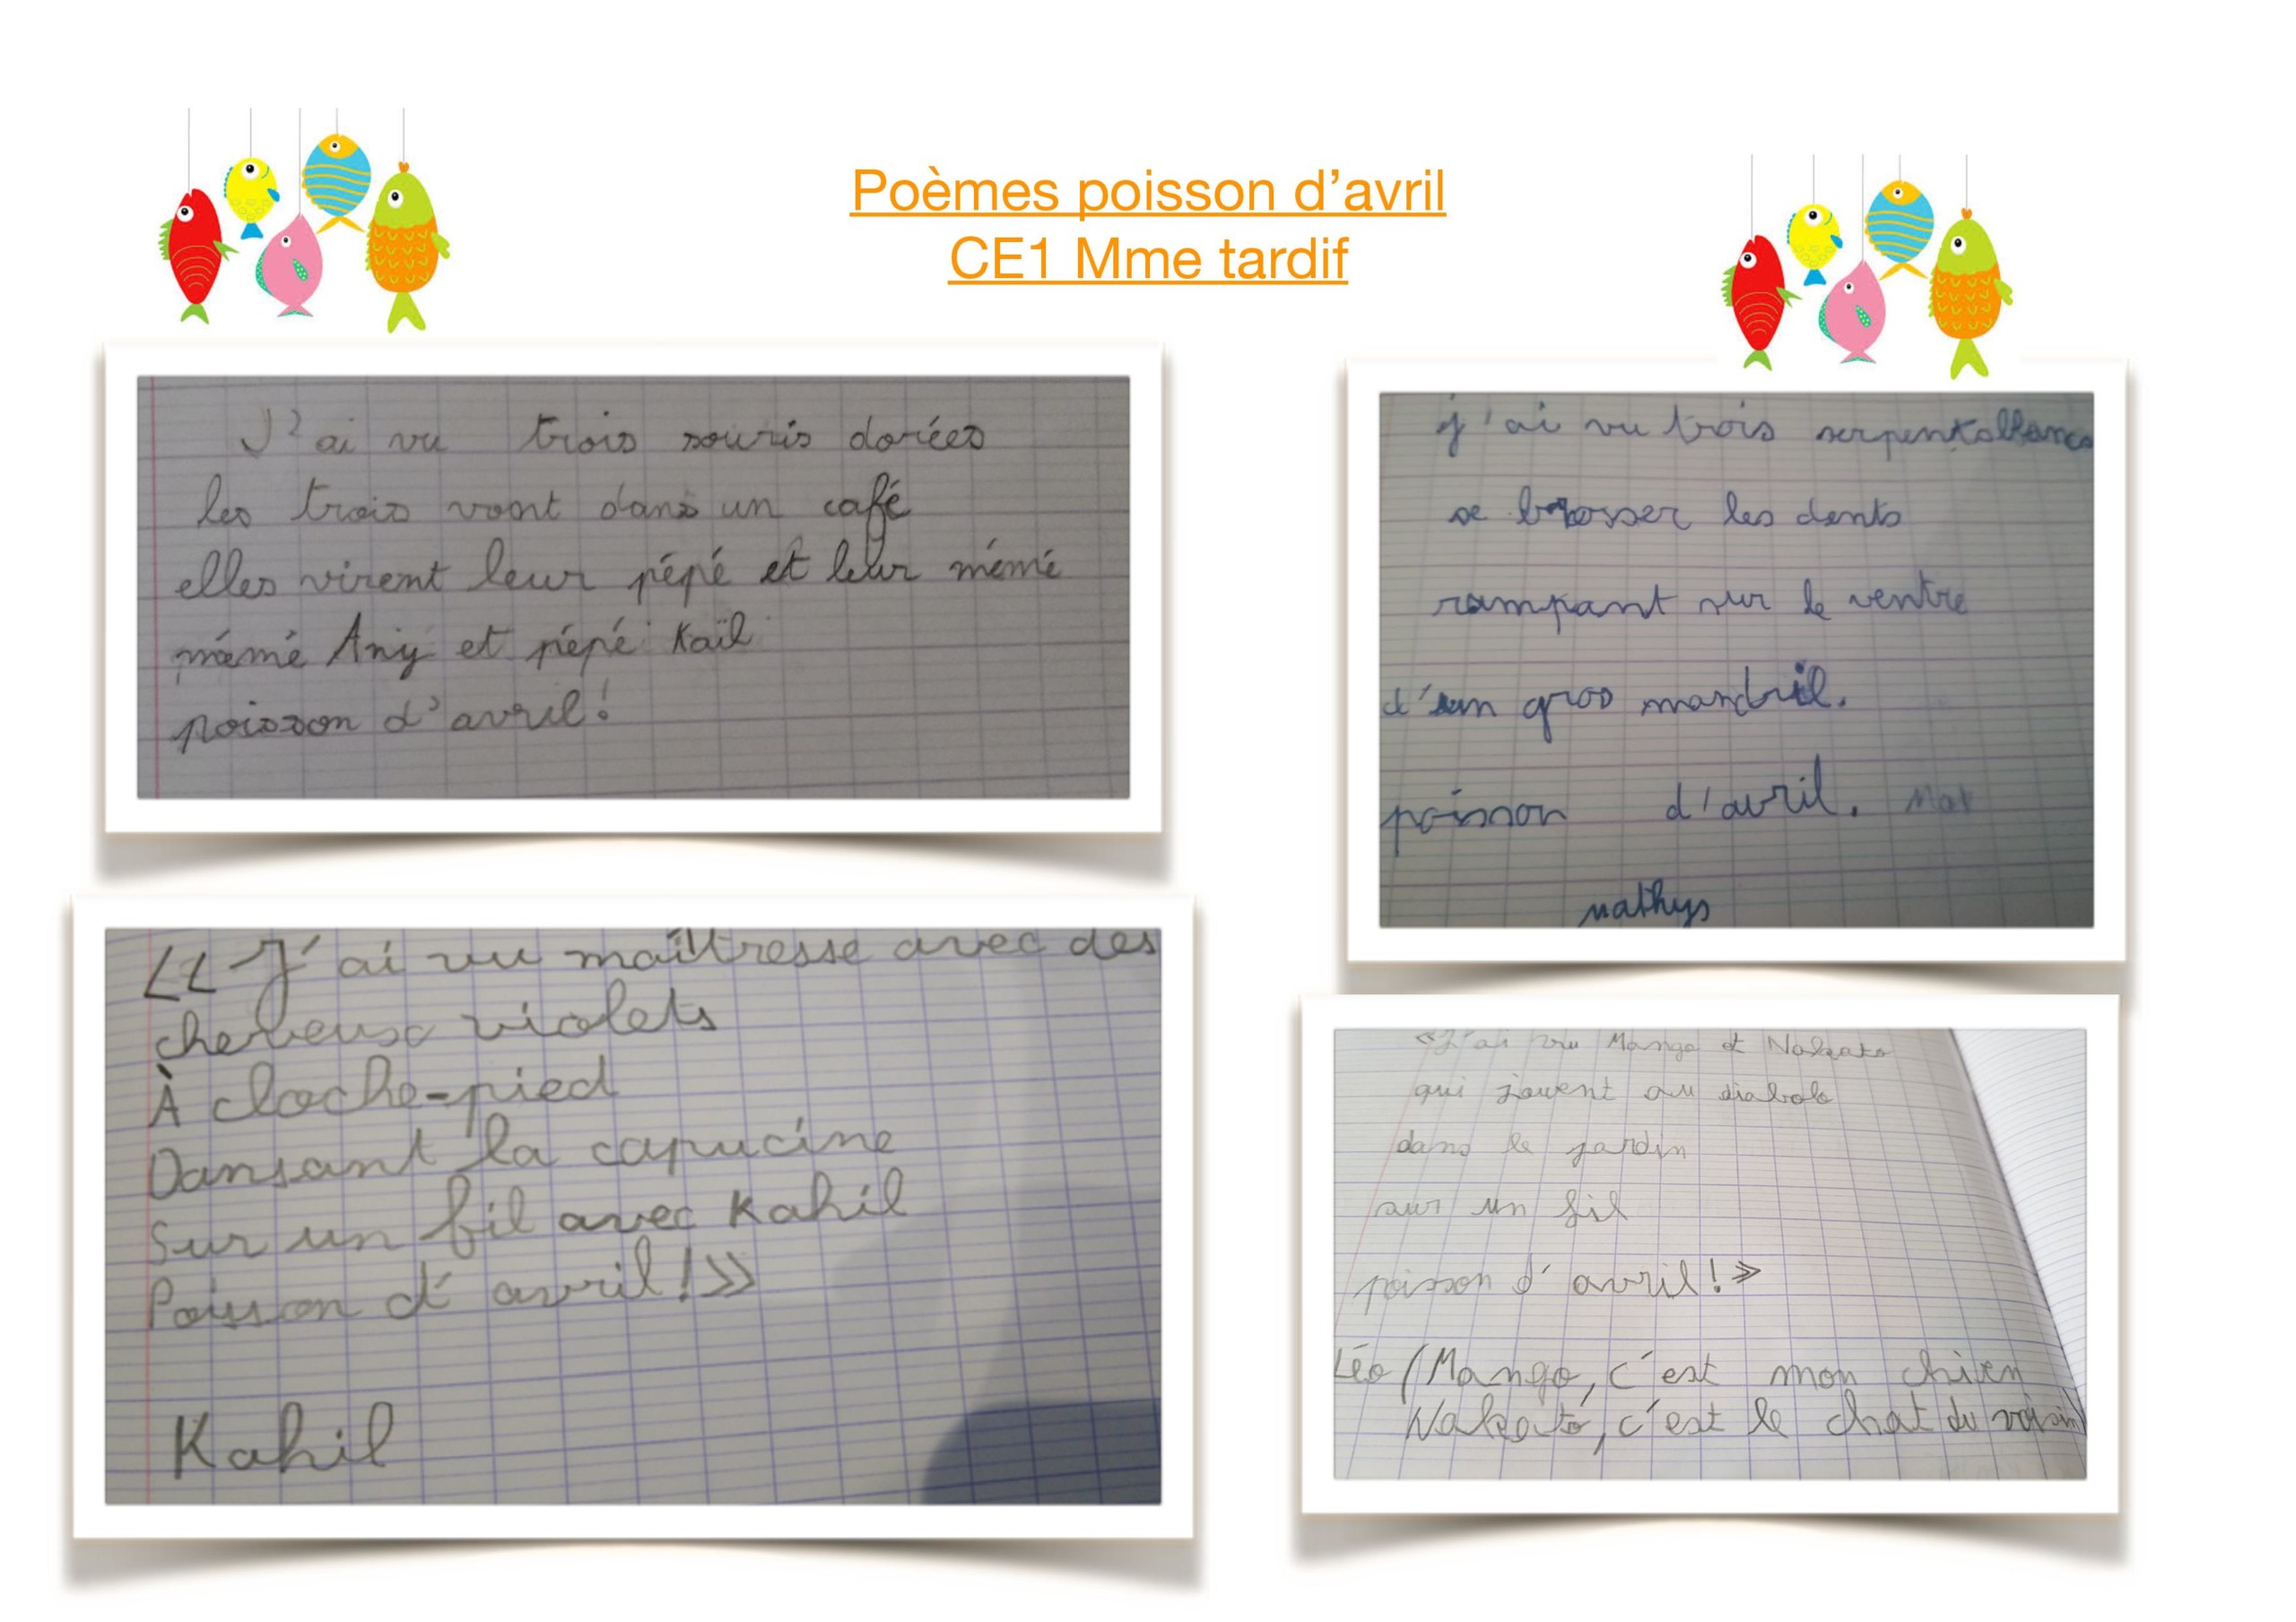 Poèmes poisson d'avril
CE1 Mme tardif
J'ai vu trois souris dorées
les trois vont dans un café
elles virent leur pépé et leur mémé
mémé Any et pépé Kaïl
poisson d'avril!
j'ai vu trois
se brosser les dents
rampant sur le ventre
d'un gros mandril.
poisson d'avril. Mat
mathys
<< J'ai vu maîtresse avec des
cheveux violets
À cloche-pied
Dansant la capucine
Sur un fil avec Kahil
Poisson d'avril!>>
Kahil
«J'ai vu Mango et Nakato
qui jouent au diabolo
dans le jardin
sur un fil
poisson d'avril!»
Léo (Mango, c'est mon chien
Nakato, c'est le chat du voisin